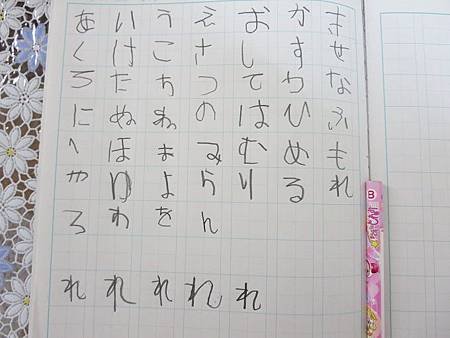 あいうえおかき
くけこさしすせ
そたちつてとな
にぬねのはひふ
へほまみむめも
やゆよらりるれ
ろわをん
れれれれれ